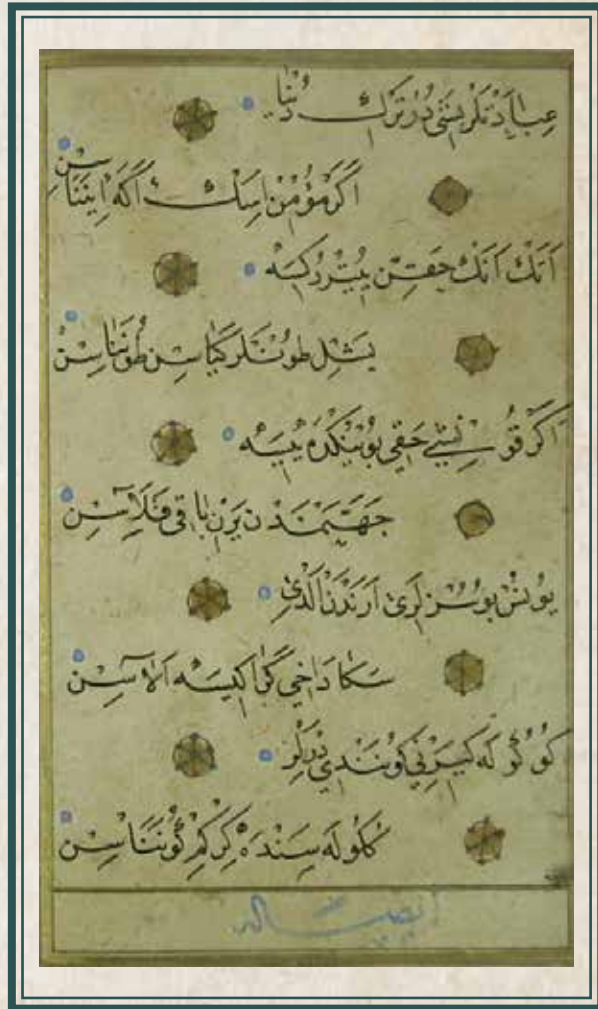 عِبَادَتْلَرْ بَشِي دُرْ تَرْكِ دُنْيَا
اَكَرْ مُؤْمِنْ اِسَكْ اَكَه اِينَنَاسِنْ
اَتَنْكْ اَنَنْكْ حَقِنْ يِتُرْدُكِسَه
يَشِلْ طُونْلَر كَيَاسِنْ طُونَنَاسِنْ
اَكَرْ قُونْشِي حَقِي بُويْنِكْدَه يِيسَه
جَهَنَّمْدَن يَرِنْ بَاقِي قَلَاسِنْ
يُونُسْ بُو سُزْلَرِي اَرَنْدَنْ اَلْدِي
سَكَا دَاخِي كَرَاكِيسَه اَلَاسِنْ
كُوكُولَه كِيرَنِي كُويُنْدِي دِرْلَرْ
كُكُولَه سَنْدَه كِرْ كِمْ كُويُنَاسِنْ